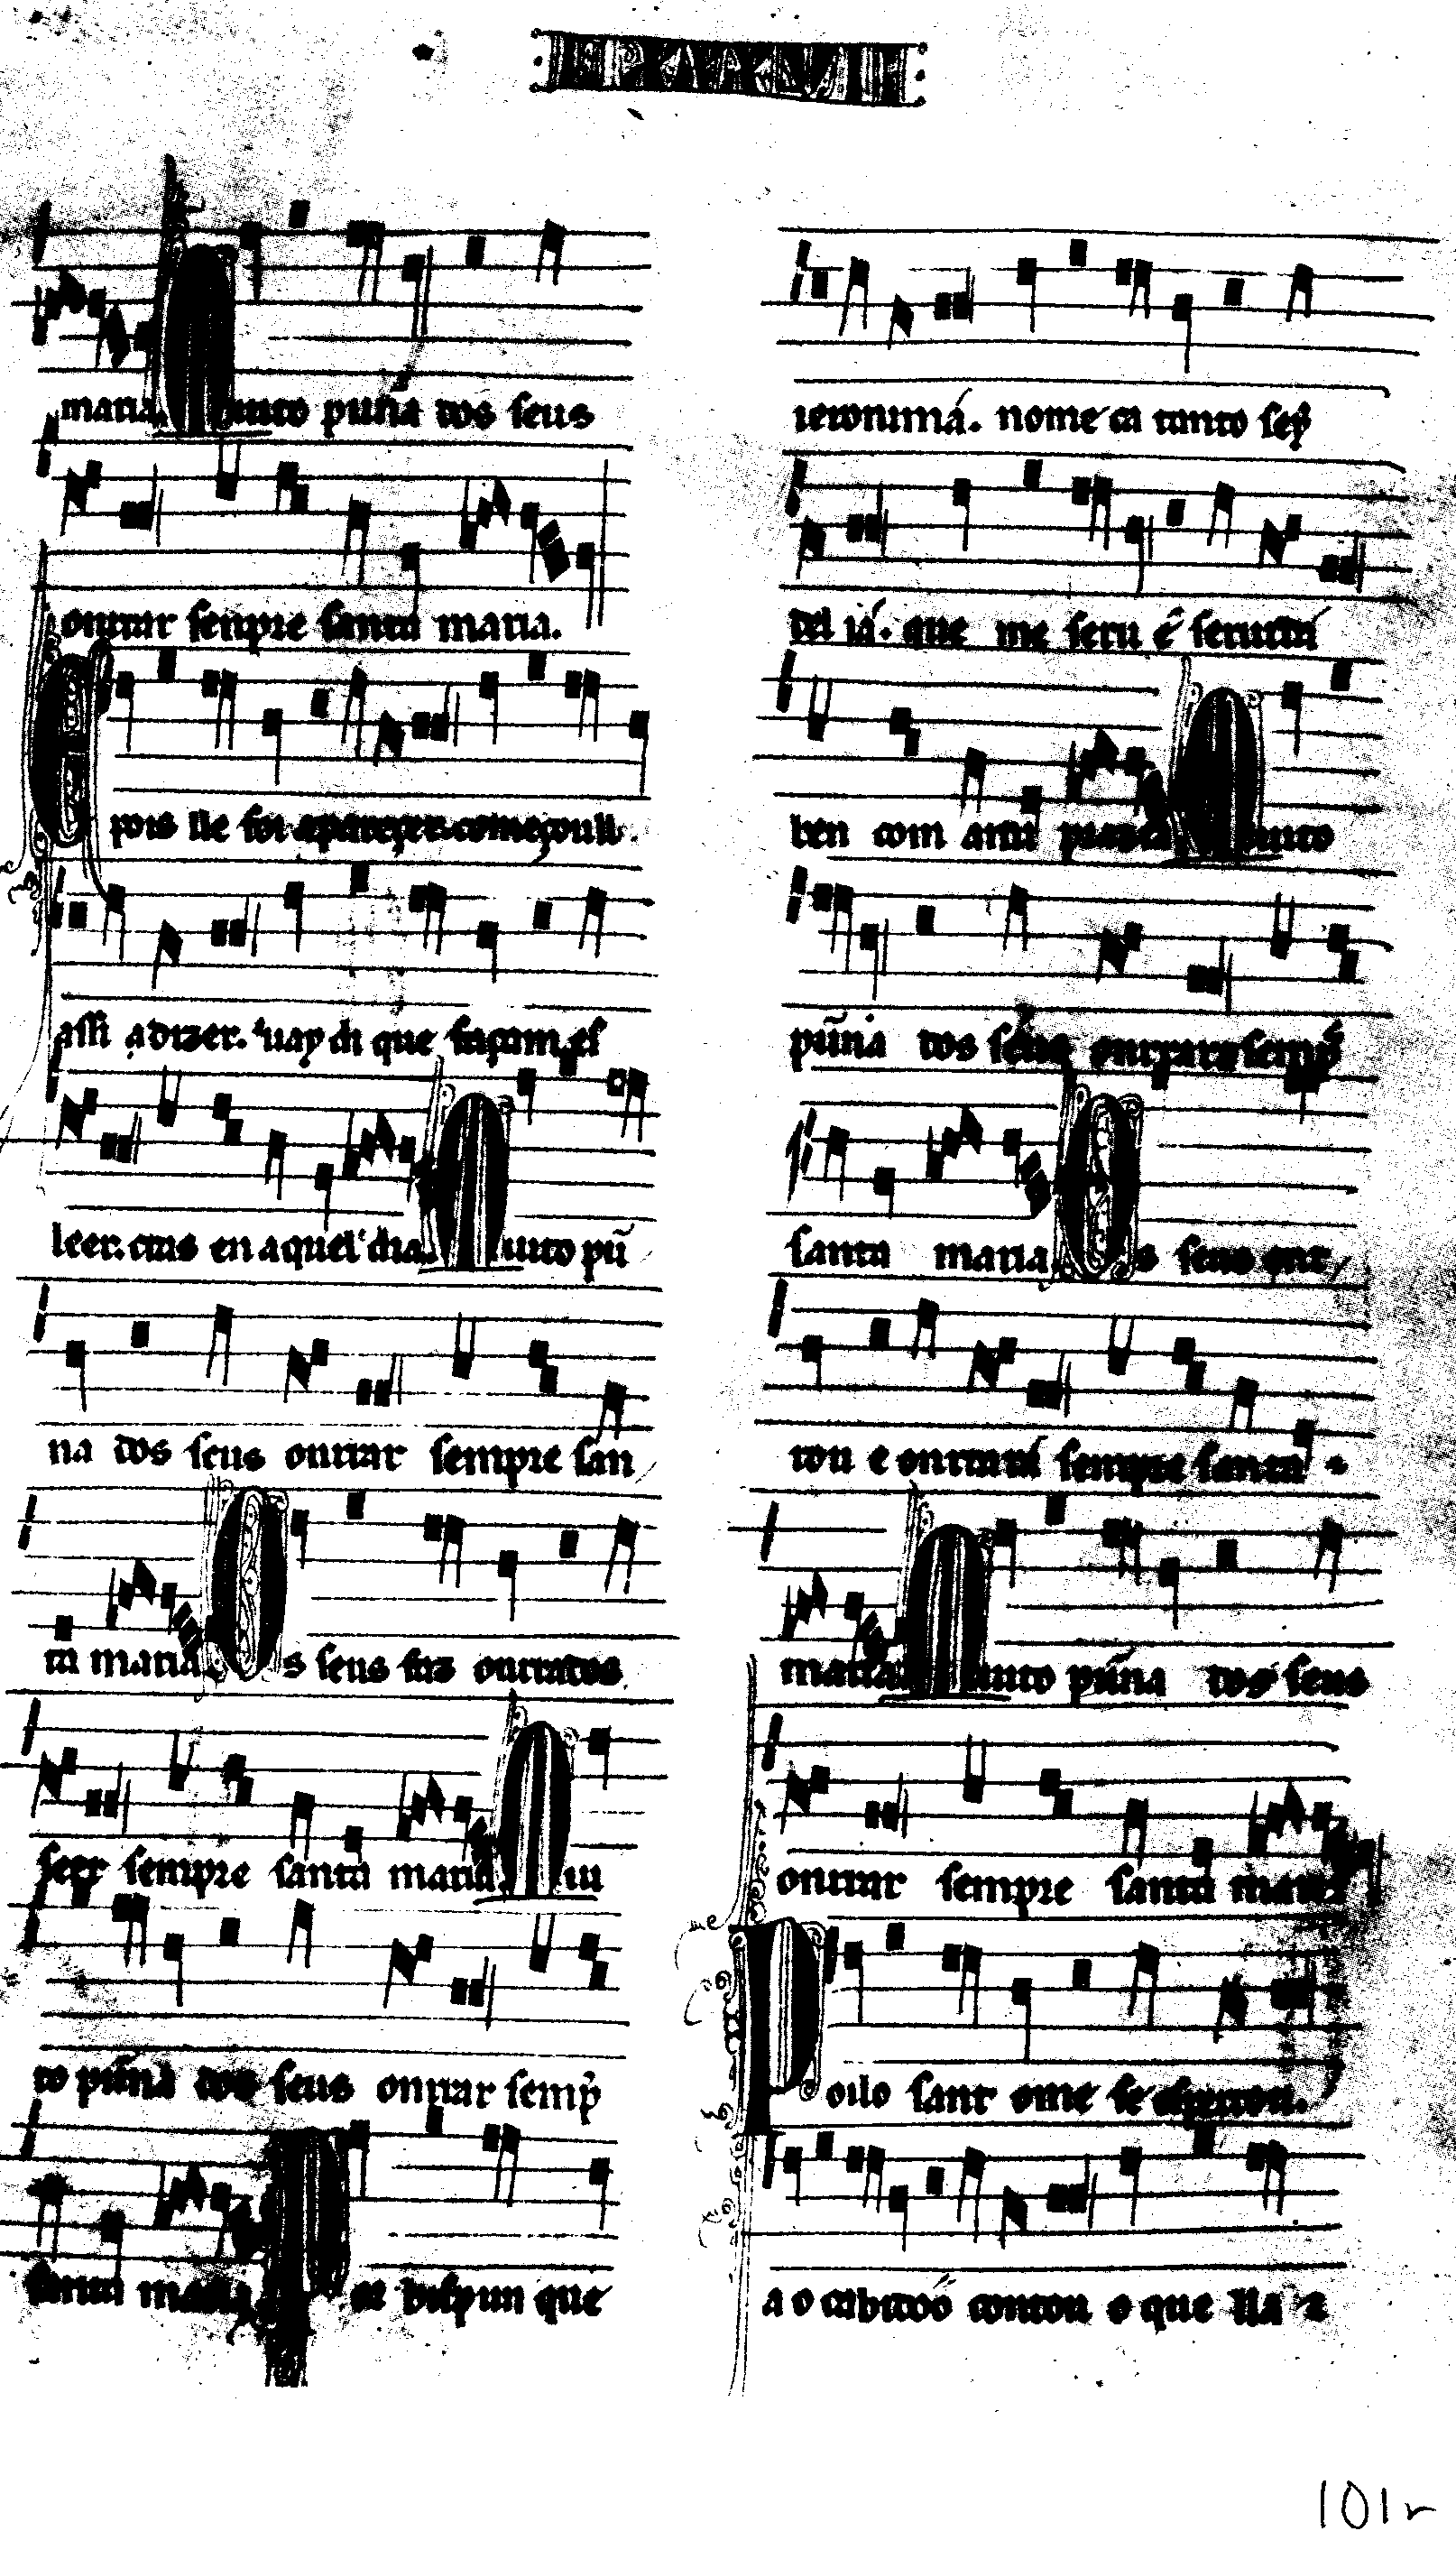 maria. Muito puña dos seus
onrrar senpre santa maria.
E pois lle foi apareçer. começou ll
assi a dizer. Vay di que façam es
leer. cras en aquel dia. Muito pũ
na dos seus onrrar sempre san
ta maria. Os seus faz onrrados
seer sempre santa maria. Mui
to puña dos seus onrrar semp̃
santa maria. que
ieronima. nome ca tanto sep̃
del ia. que me seru e seruirá
ben com a mia Muito
puña dos seus onrrar semp̃
santa maria. Os seus onr
rou e onrrará sempre santa
maria. Muito puña dos seus
onrrar sempre santa maria
Poilo sant ome se espertou.
a o cabidoo contou o que lla a
101r